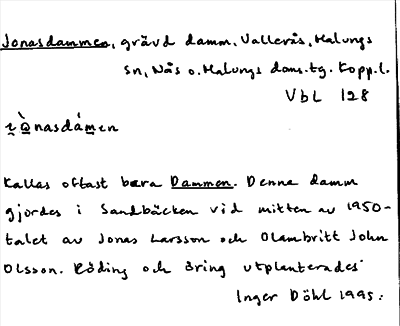 Jonasdammen, grävd damm, Vallerås, Malungs
sn, Nås o. Malungs doms.tg. Kopp.l.
VbL 128
Kallas oftast bara Dammen. Denna damm
gjordes i Sandbäcken vid mitten av 1950-
talet av Jonas Larsson och Olambritt John
Olsson. Röding och öring utplanterades.
Inger Döhl 1995.